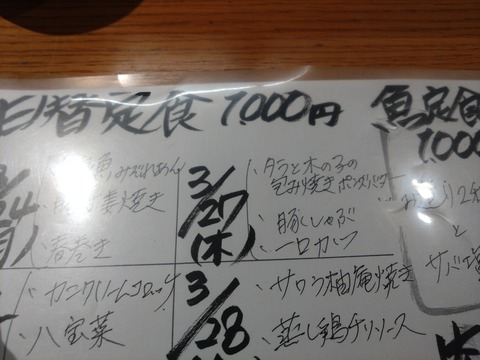 日替定食 1,000円
魚定食
1,000
みぞれあん
姜焼き
春巻き
3/27
(木)
・タラと木の子の
包み焼きポン酢バター
・豚しゃぶ
・一口カツ
・カニクリームコロッケ
・八宝菜
3/28
・サワラ柚庵焼き
・蒸し鶏チリソース
お造り2種
と
サバ塩